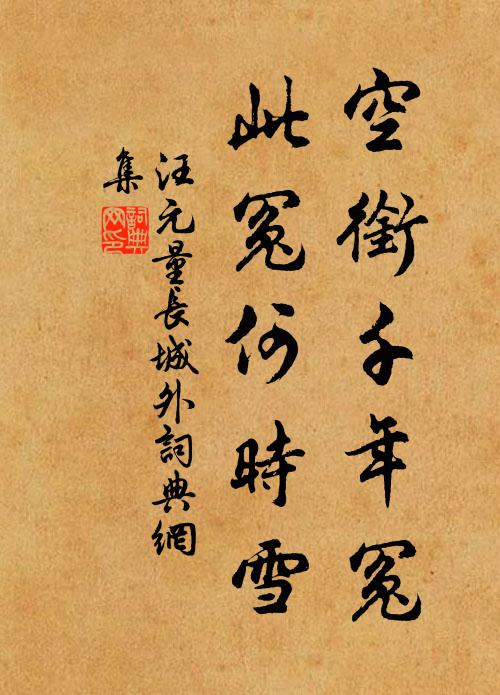 空銜千年冤
此冤何時雪
汪元量長城外詞典網
集
詞典網印